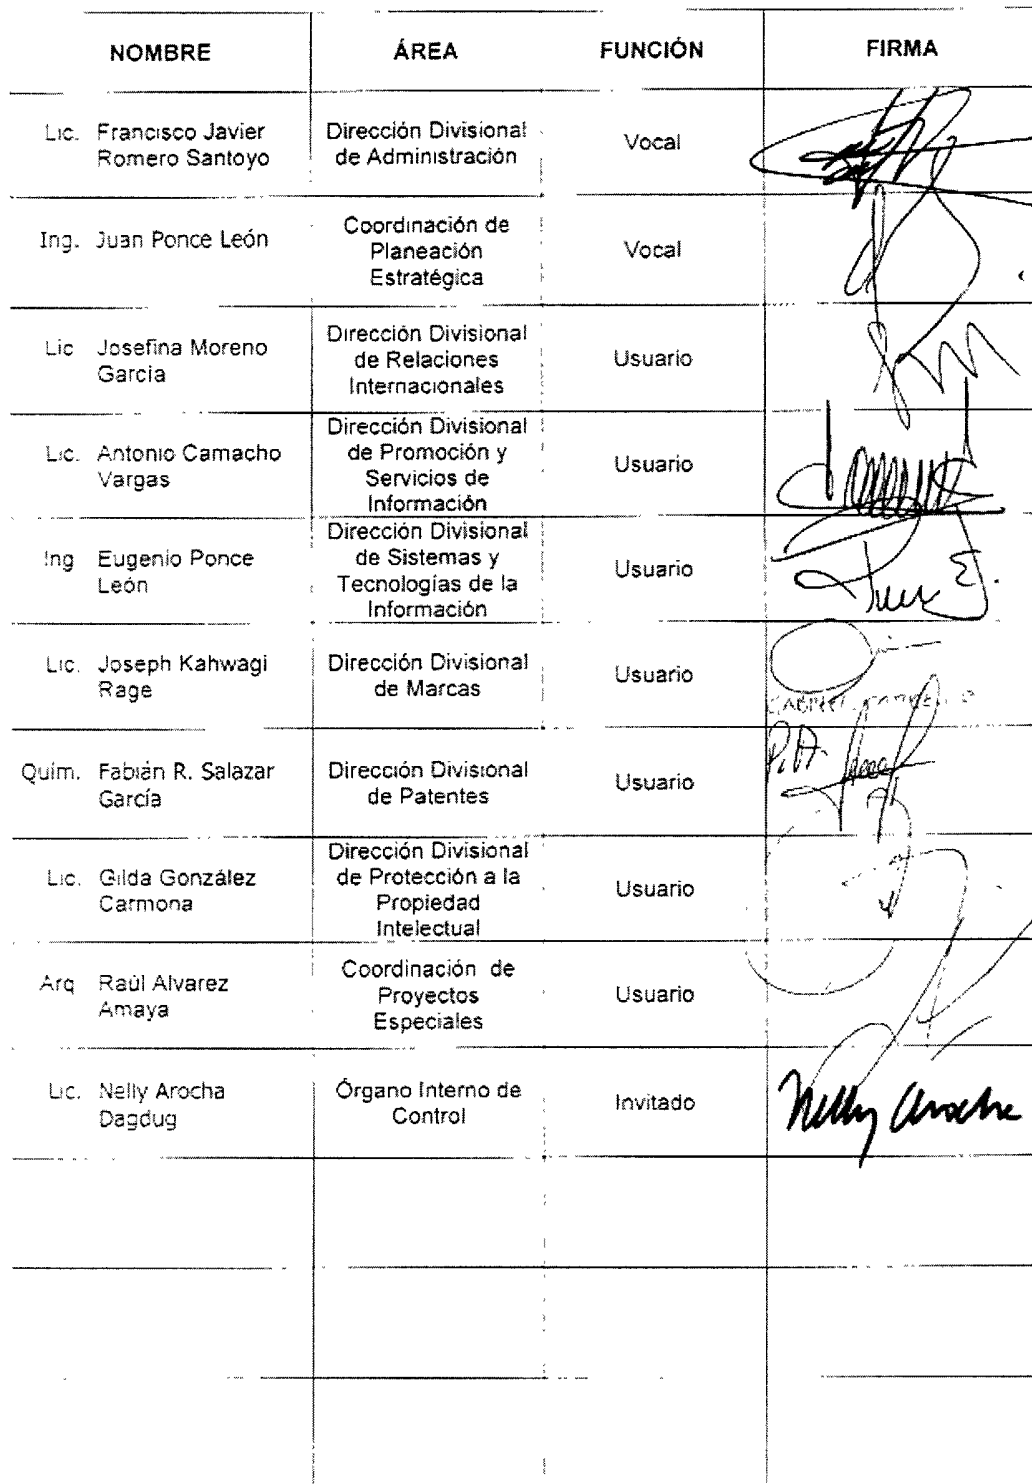 NOMBRE ÁREA FUNCIÓN FIRMA
Lic. Francisco Javier Romero Santoyo
Dirección Divisional de Administración
Vocal
Ing. Juan Ponce León
Coordinación de Planeación Estratégica
Vocal
Lic Josefina Moreno Garcia
Dirección Divisional de Relaciones Internacionales
Usuario
Lic. Antonio Camacho Vargas
Dirección Divisional de Promoción y Servicios de Información
Usuario
Ing Eugenio Ponce León
Dirección Divisional de Sistemas y Tecnologías de la Información
Usuario
Lic. Joseph Kahwagi Rage
Dirección Divisional de Marcas
Usuario
Quím. Fabián R. Salazar García
Dirección Divisional de Patentes
Usuario
P.A.
Lic. Gilda González Carmona
Dirección Divisional de Protección a la Propiedad Intelectual
Usuario
Arq Raúl Alvarez Amaya
Coordinación de Proyectos Especiales
Usuario
Lic. Nelly Arocha Dagdug
Órgano Interno de Control
Invitado
Nelly Arocha